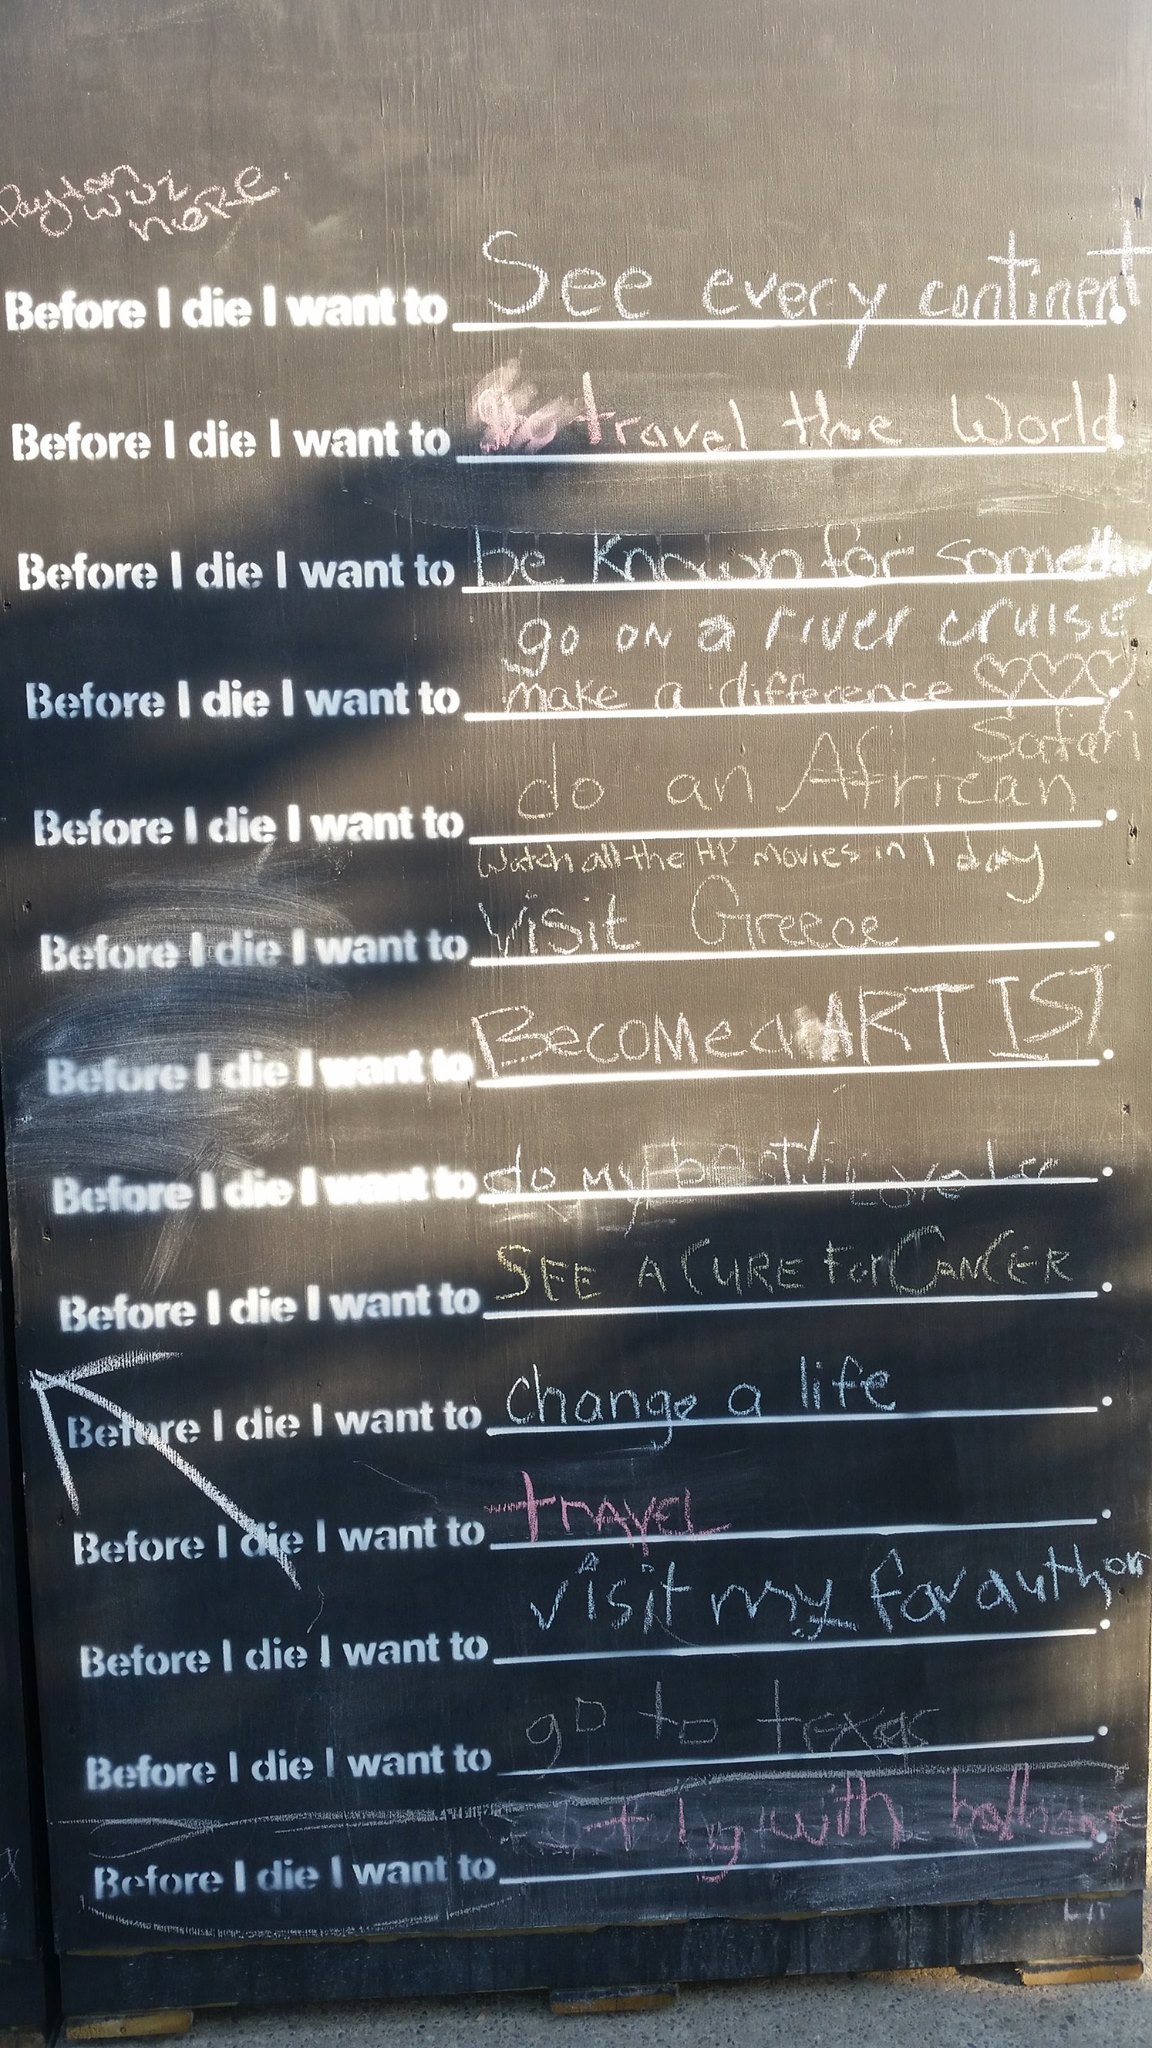 Payton wuz
here.
Before I die I want to See every continent.
Before I die I want to travel the World.
Before I die I want to be known for something
go on a river cruise
Before I die I want to make a difference ♡♡♡.
Safari
Before I die I want to do an African.
Watch all the HP movies in 1 day
Before I die I want to visit Greece.
Before I die I want to Become a ARTIST.
Before I die I want to do my best! Love.
Before I die I want to SEE A CURE For CANCER.
Before I die I want to change a life.
Before I die I want to travel.
Before I die I want to visit my fav author.
Before I die I want to go to texas.
Before I die I want to fly with.